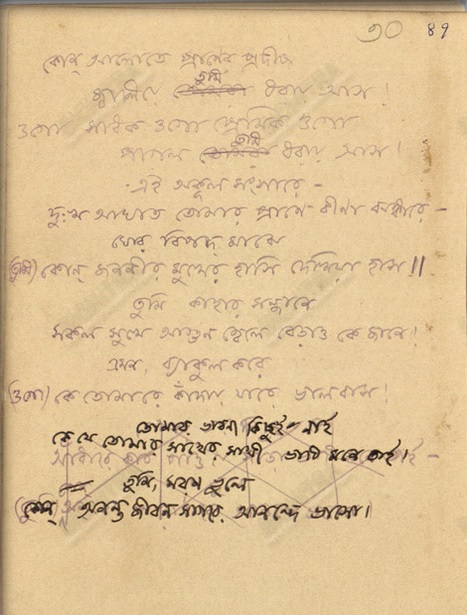 ৩০ 89
কোন্ আলোতে প্রাণের প্রদীপ
তুমি
জ্বালিয়ে ধরায় আস!
ওগো সাধক ওগো প্রেমিক ওগো
তুমি
পাগল ধরায় আস!
এই অকূল সংসারে –
দুঃখ আঘাত তোমার প্রাণে বীণা ঝঙ্কারে –
ঘোর বিপদ মাঝে
(তুমি) কোন্ জননীর মুখের হাসি দেখিয়া হাস॥
তুমি কাহার সন্ধানে
সকল সুখে আগুন জ্বেলে বেড়াও কে জানে!
এমন ব্যাকুল করে
(ওগো) কে তোমারে কাঁদায় যারে ভালবাস!
তোমার ভাবনা কিছুই নাই
কে যে তোমার সাথের সাথী ভাবি মনে তাই।
তুমি মরণ ভুলে
কোন্ অনন্ত জীবন সাগরে আনন্দে ভাসো।